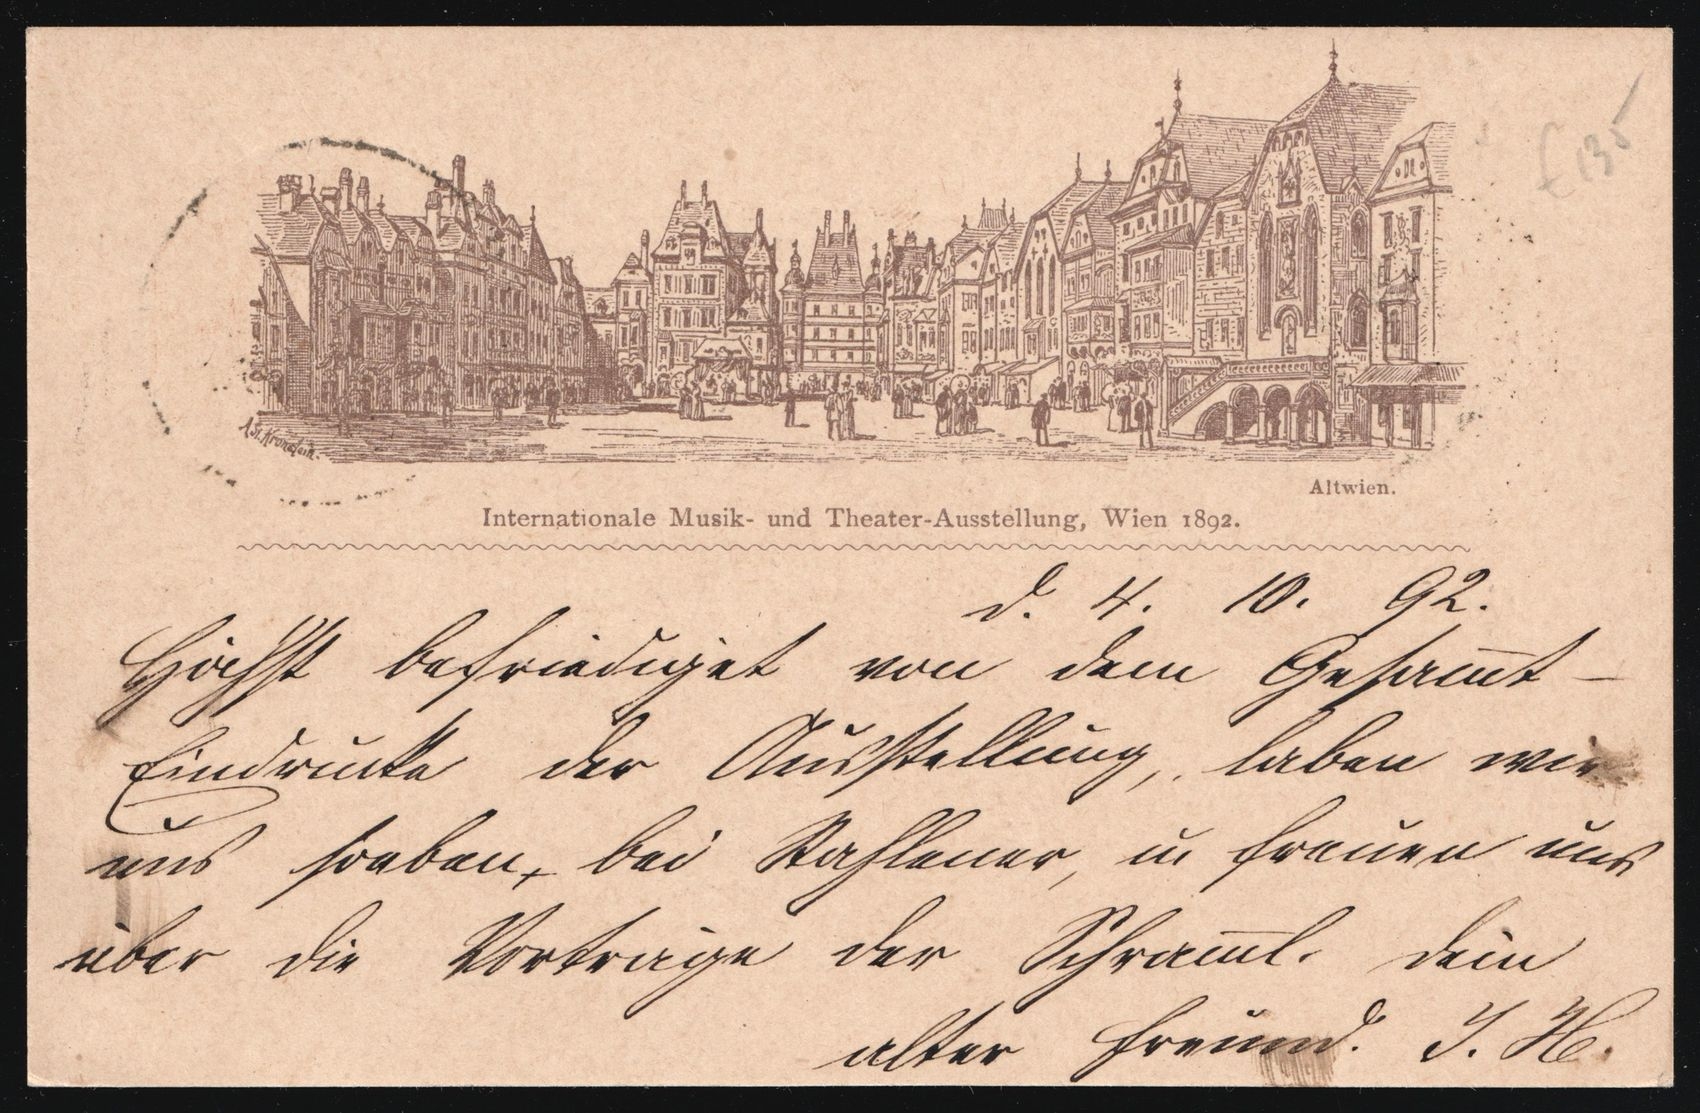 £135
A. St. Kronstein.
Altwien.
Internationale Musik- und Theater-Ausstellung, Wien 1892.
d. 4. 10. 92.
Höchst befriediget von dem Gesam̅t-
Eindrucke der Ausstellung, laben wir
uns soeben, bei Stahlener, u freuen uns
über die Vorträge der Schram̅l. Dein
alter Freund. J. H.